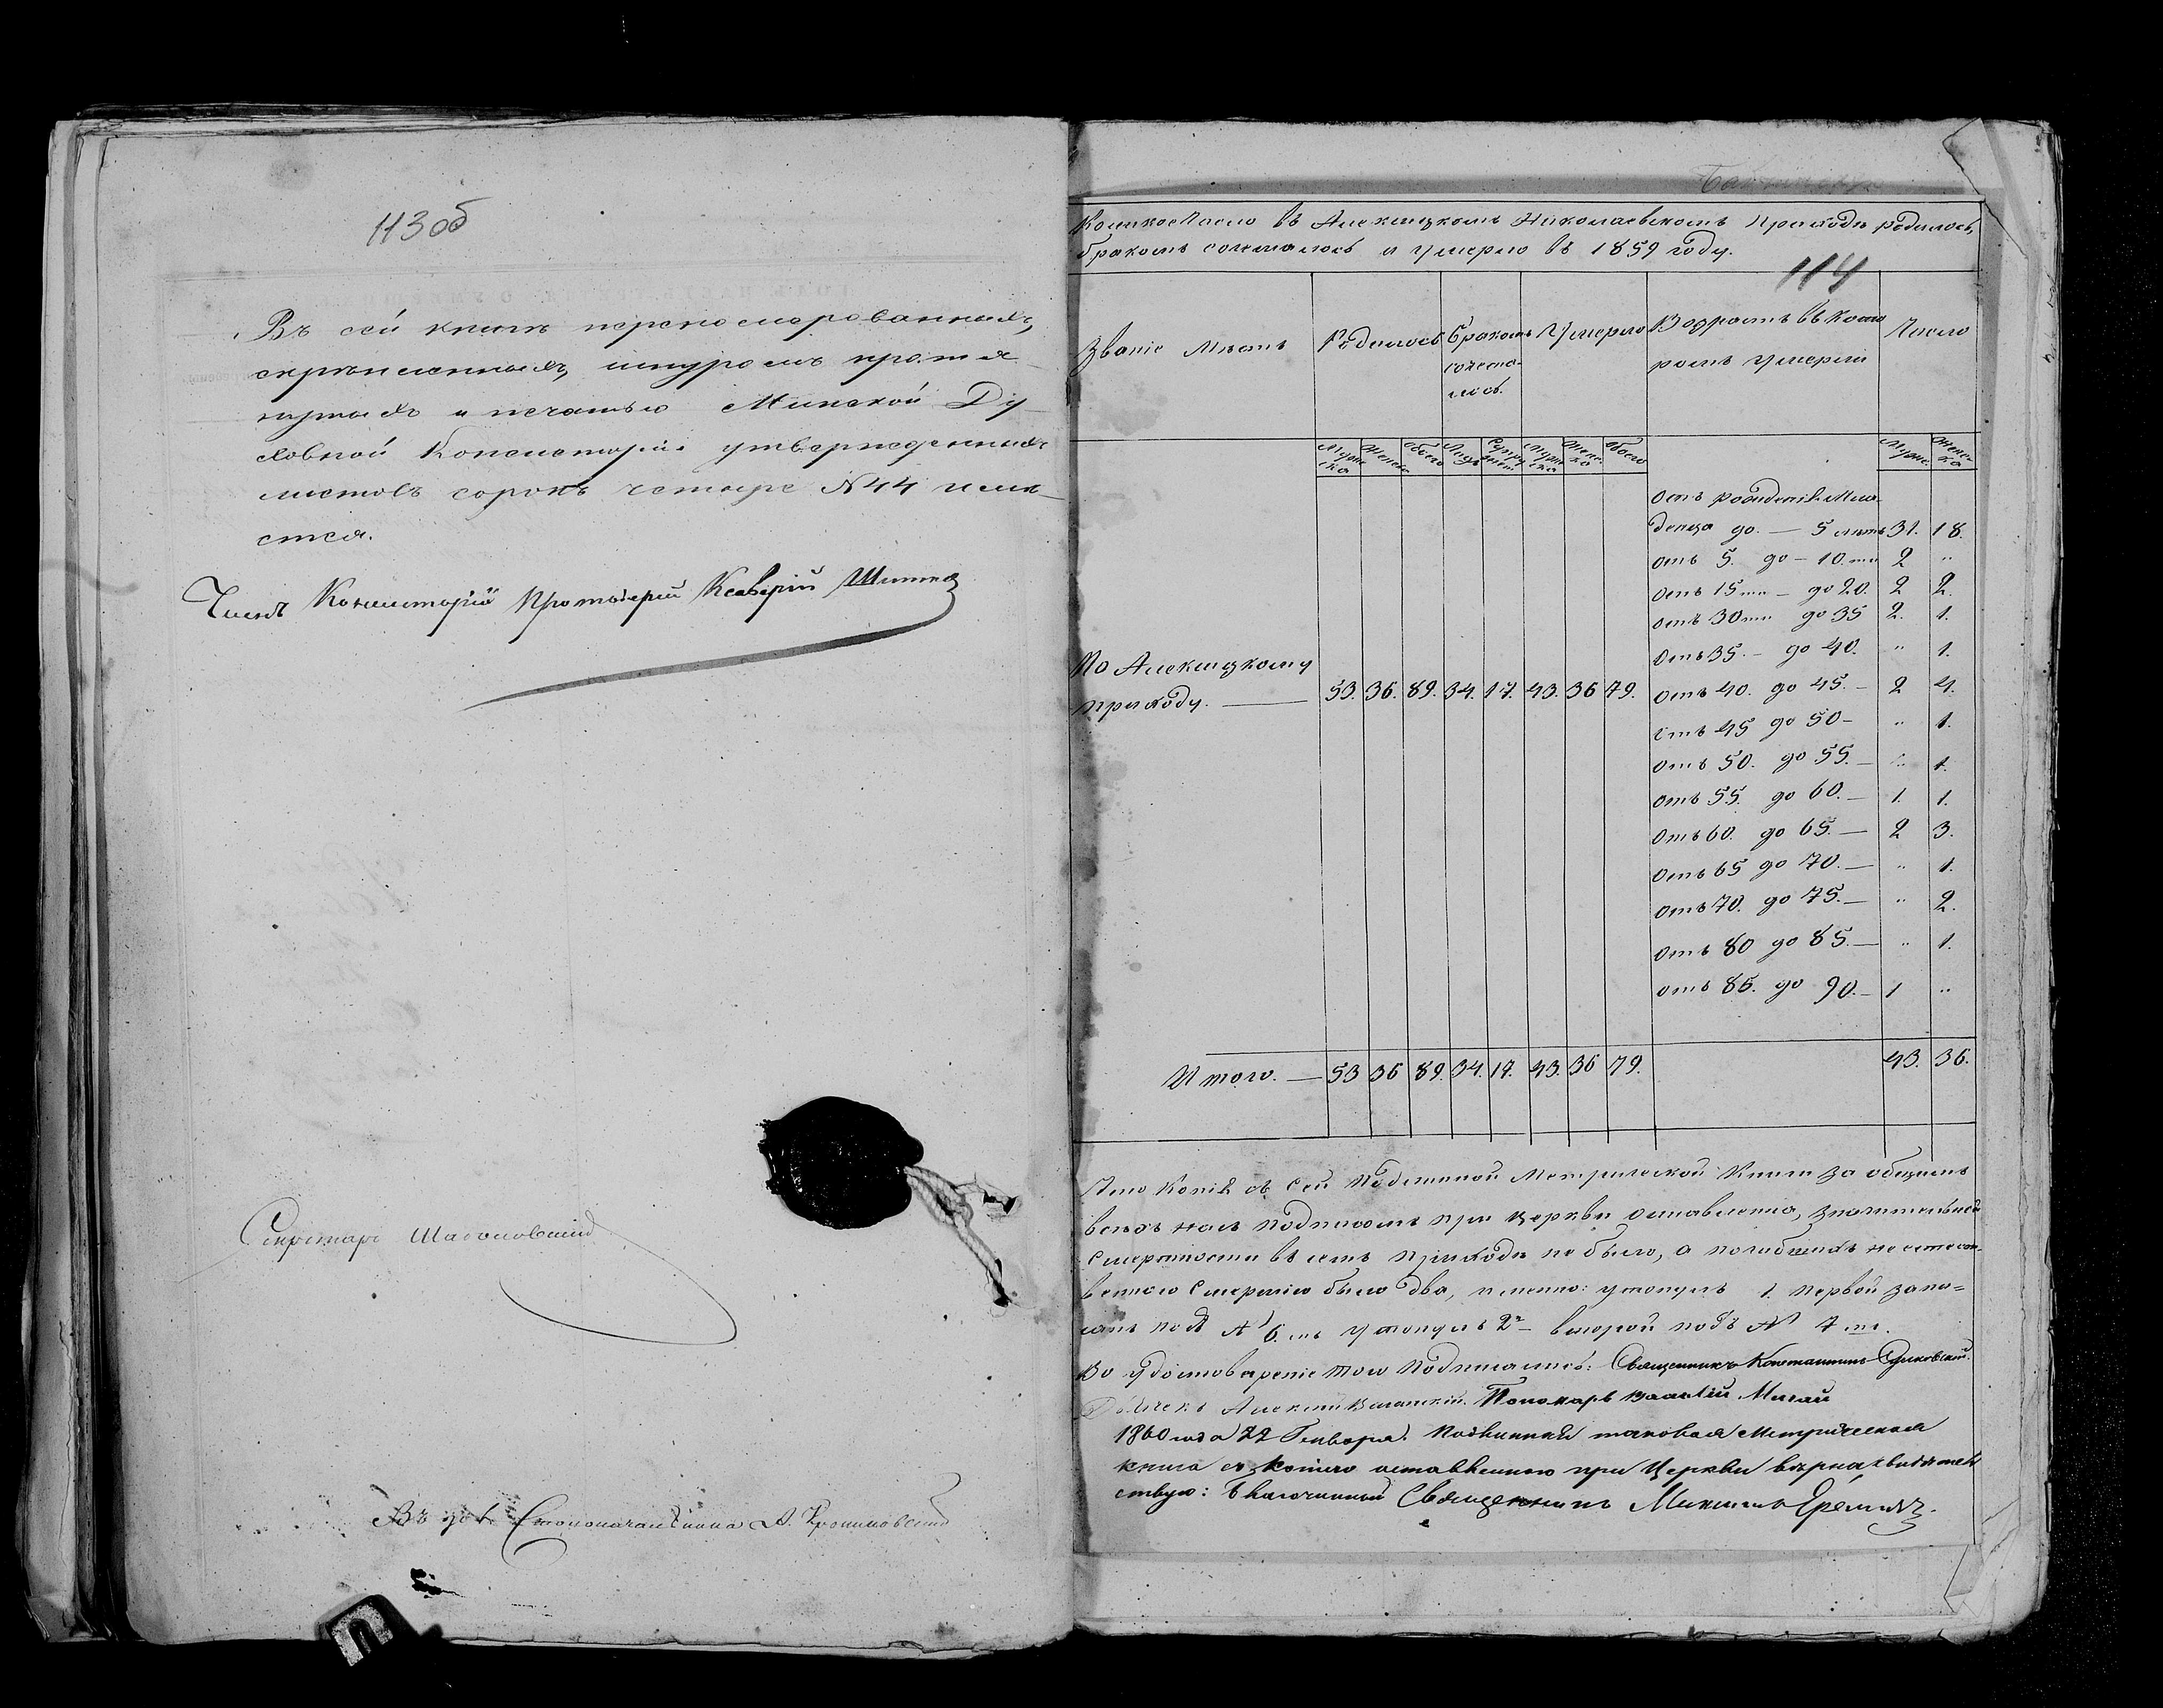 113об
Въ сей книгѣ перенумерованныхъ,
скрѣпленныхъ, шнуромъ протя-
нутыхъ и печатью Минской Ду-
ховной Консисторіи утвержденныхъ
листовъ сорокъ четыре №44 имѣ-
ется.
Членъ Консисторіи Протоіерей Ксаверій
Секретарь
Въ Столоначальника А.
Количество въ Николаевскомъ Приходѣ родилось,
бракомъ сочеталось и умерло въ 1859 году.
114
Званіе Мѣстъ Родилось Бракомъ сочета-лось. Умерло Возрастъ въ кото ромъ умерли Число
Мужеска Женска Обоего Лицъ Мужеска Женска Обоего Мужес. Женска
Отъ рожденія Мла-
денца до — 5 лѣтъ 31. 18.
отъ 5. до — 10.ти 2 "
отъ 15ти — до 20. 2 2.
отъ 30ти до 35 2. 1.
Отъ 35. — до 40. " 1.
По
приходу. — 53. 36. 89. 34. 17. 43. 36 79. отъ 40. до 45. — 2 4.
отъ 45 до 50 — " 1.
отъ 50. до 55. — " 1.
отъ 55. до 60. — 1. 1.
отъ 60. до 65. — 2 3.
отъ 65 до 70. — " 1.
отъ 70. до 75. — " 2.
отъ 80 до 85. — " 1.
отъ 85. до 90. — 1 "
Итого. — 53 36 89. 34. 17. 43. 36 79. 43. 36.
Что Копія съ сей Подлинной Метрической Книги за общимъ
всѣхъ насъ подписомъ при церкви оставлена, значительной
смертности въ семъ приходѣ не было, а погибшихъ неестест-
венною смертію было два, именно: утонулъ 1. первой запи=
санъ подъ № 6.мъ утонулъ 2й — второй подъ № 7мъ.
Во удостовѣреніе того подписались: Священникъ Константинъ
Дьячекъ Алексѣй Пономарь Василій
1860 года 22 Генваря. Подлинная таковая Метрическая
книга съ копіею оставленною при Церкви вѣрна свидѣтель
ствую: Благочинный Священникъ